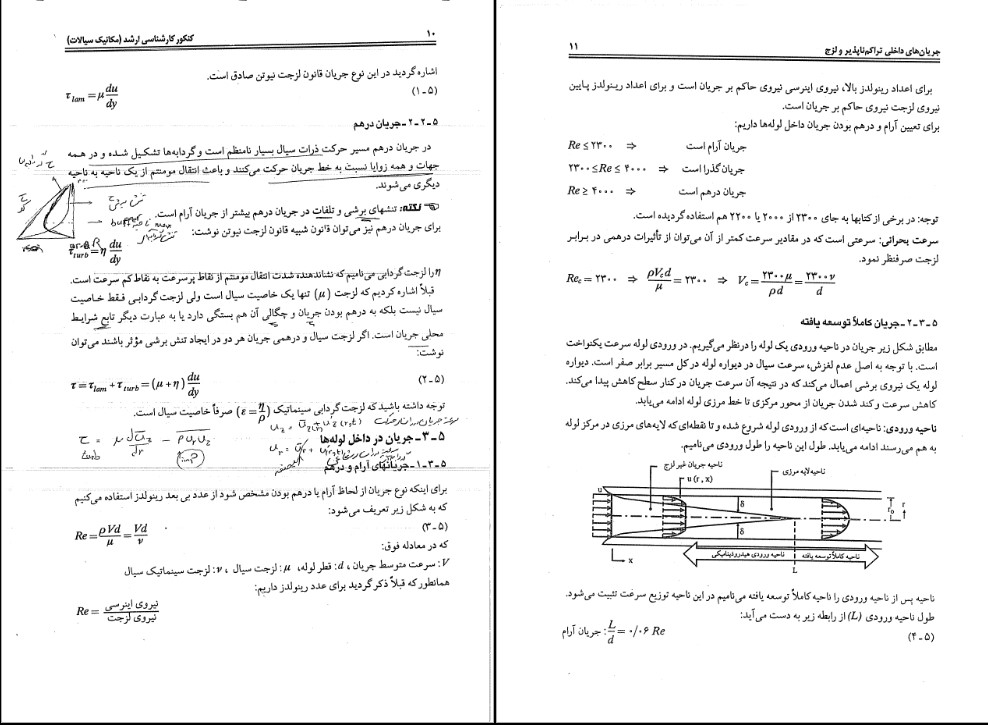 ۱۰
کنکور کارشناسی ارشد (مکانیک سیالات)
اشاره گردید در این نوع جریان قانون لزجت نیوتن صادق است.
τ lam = μ du/dy (۵-۱)
۵-۲-۲-جریان درهم
در جریان درهم مسیر حرکت ذرات سیال بسیار نامنظم است و گردابه‌ها تشکیل شده و در همه
جهات و همه زوایا نسبت به خط جریان حرکت می‌کنند و باعث انتقال مومنتم از یک ناحیه به ناحیه
دیگری می‌شوند.
نکته: تنشهای برشی و تلفات در جریان درهم بیشتر از جریان آرام است.
برای جریان درهم نیز می‌توان قانون شبیه قانون لزجت نیوتن نوشت:
τ turb = η du/dy
η را لزجت گردابی می‌نامیم که نشاندهنده شدت انتقال مومنتم از نقاط پرسرعت به نقاط کم سرعت است.
قبلاً اشاره کردیم که لزجت (μ) تنها یک خاصیت سیال است ولی لزجت گردابی فقط خاصیت
سیال نیست بلکه به درهم بودن جریان و چگالی آن هم بستگی دارد یا به عبارت دیگر تابع شرایط
محلی جریان است. اگر لزجت سیال و درهمی جریان هر دو در ایجاد تنش برشی مؤثر باشند می‌توان
نوشت:
τ = τ lam + τ turb = (μ + η) du/dy (۵-۲)
توجه داشته باشید که لزجت گردابی سینماتیک (ε = η/ρ) صرفاً خاصیت سیال است.
۵-۳-جریان در داخل لوله‌ها
۵-۳-۱-جریانهای آرام و درهم
برای اینکه نوع جریان از لحاظ آرام یا درهم بودن مشخص شود از عدد بی بعد رینولدز استفاده می‌کنیم
که به شکل زیر تعریف می‌شود:
Re = ρVd/μ = Vd/ν (۵-۳)
که در معادله فوق:
V: سرعت متوسط جریان، d: قطر لوله، μ: لزجت سیال، ν: لزجت سینماتیک سیال
همانطور که قبلاً ذکر گردید برای عدد رینولدز داریم:
Re = نیروی اینرسی/نیروی لزجت
جریان‌های داخلی تراکم‌ناپذیر و لزج
۱۱
برای اعداد رینولدز بالا، نیروی اینرسی نیروی حاکم بر جریان است و برای اعداد رینولدز پایین
نیروی لزجت نیروی حاکم بر جریان است.
برای تعیین آرام و درهم بودن جریان داخل لوله‌ها داریم:
Re ≤ ۲۳۰۰ ⇒ جریان آرام است
۲۳۰۰ ≤ Re ≤ ۴۰۰۰ ⇒ جریان گذرا است
Re ≥ ۴۰۰۰ ⇒ جریان درهم است
توجه: در برخی از کتابها به جای ۲۳۰۰ از ۲۰۰۰ یا ۲۲۰۰ هم استفاده گردیده است.
سرعت بحرانی: سرعتی است که در مقادیر سرعت کمتر از آن می‌توان از تأثیرات درهمی در برابر
لزجت صرفنظر نمود.
Re c = ۲۳۰۰ ⇒ ρV c d/μ = ۲۳۰۰ ⇒ V c = ۲۳۰۰μ/ρd = ۲۳۰۰ν/d
۵-۳-۲-جریان کاملاً توسعه یافته
مطابق شکل زیر جریان در ناحیه ورودی یک لوله را درنظر می‌گیریم. در ورودی لوله سرعت یکنواخت
است. با توجه به اصل عدم لغزش، سرعت سیال در دیواره لوله در کل مسیر برابر صفر است. دیواره
لوله یک نیروی برشی اعمال می‌کند که در نتیجه آن سرعت جریان در کنار سطح کاهش پیدا می‌کند.
کاهش سرعت و کند شدن جریان از محور مرکزی تا خط مرزی لوله ادامه می‌یابد.
ناحیه ورودی: ناحیه‌ای است که از ورودی لوله شروع شده و تا نقطه‌ای که لایه‌های مرزی در مرکز لوله
به هم می‌رسند ادامه می‌یابد. طول این ناحیه را طول ورودی می‌نامیم.
ناحیه جریان غیر لزج
ناحیه لایه مرزی
u (r, x)
u
δ
δ
r₀
r
ناحیه ورودی هیدرودینامیکی
ناحیه کاملاً توسعه یافته
x
L
ناحیه پس از ناحیه ورودی را ناحیه کاملاً توسعه یافته می‌نامیم در این ناحیه توزیع سرعت تثبیت می‌شود.
طول ناحیه ورودی (L) از رابطه زیر به دست می‌آید:
جریان آرام: L/d = ۰/۰۶ Re (۵-۴)